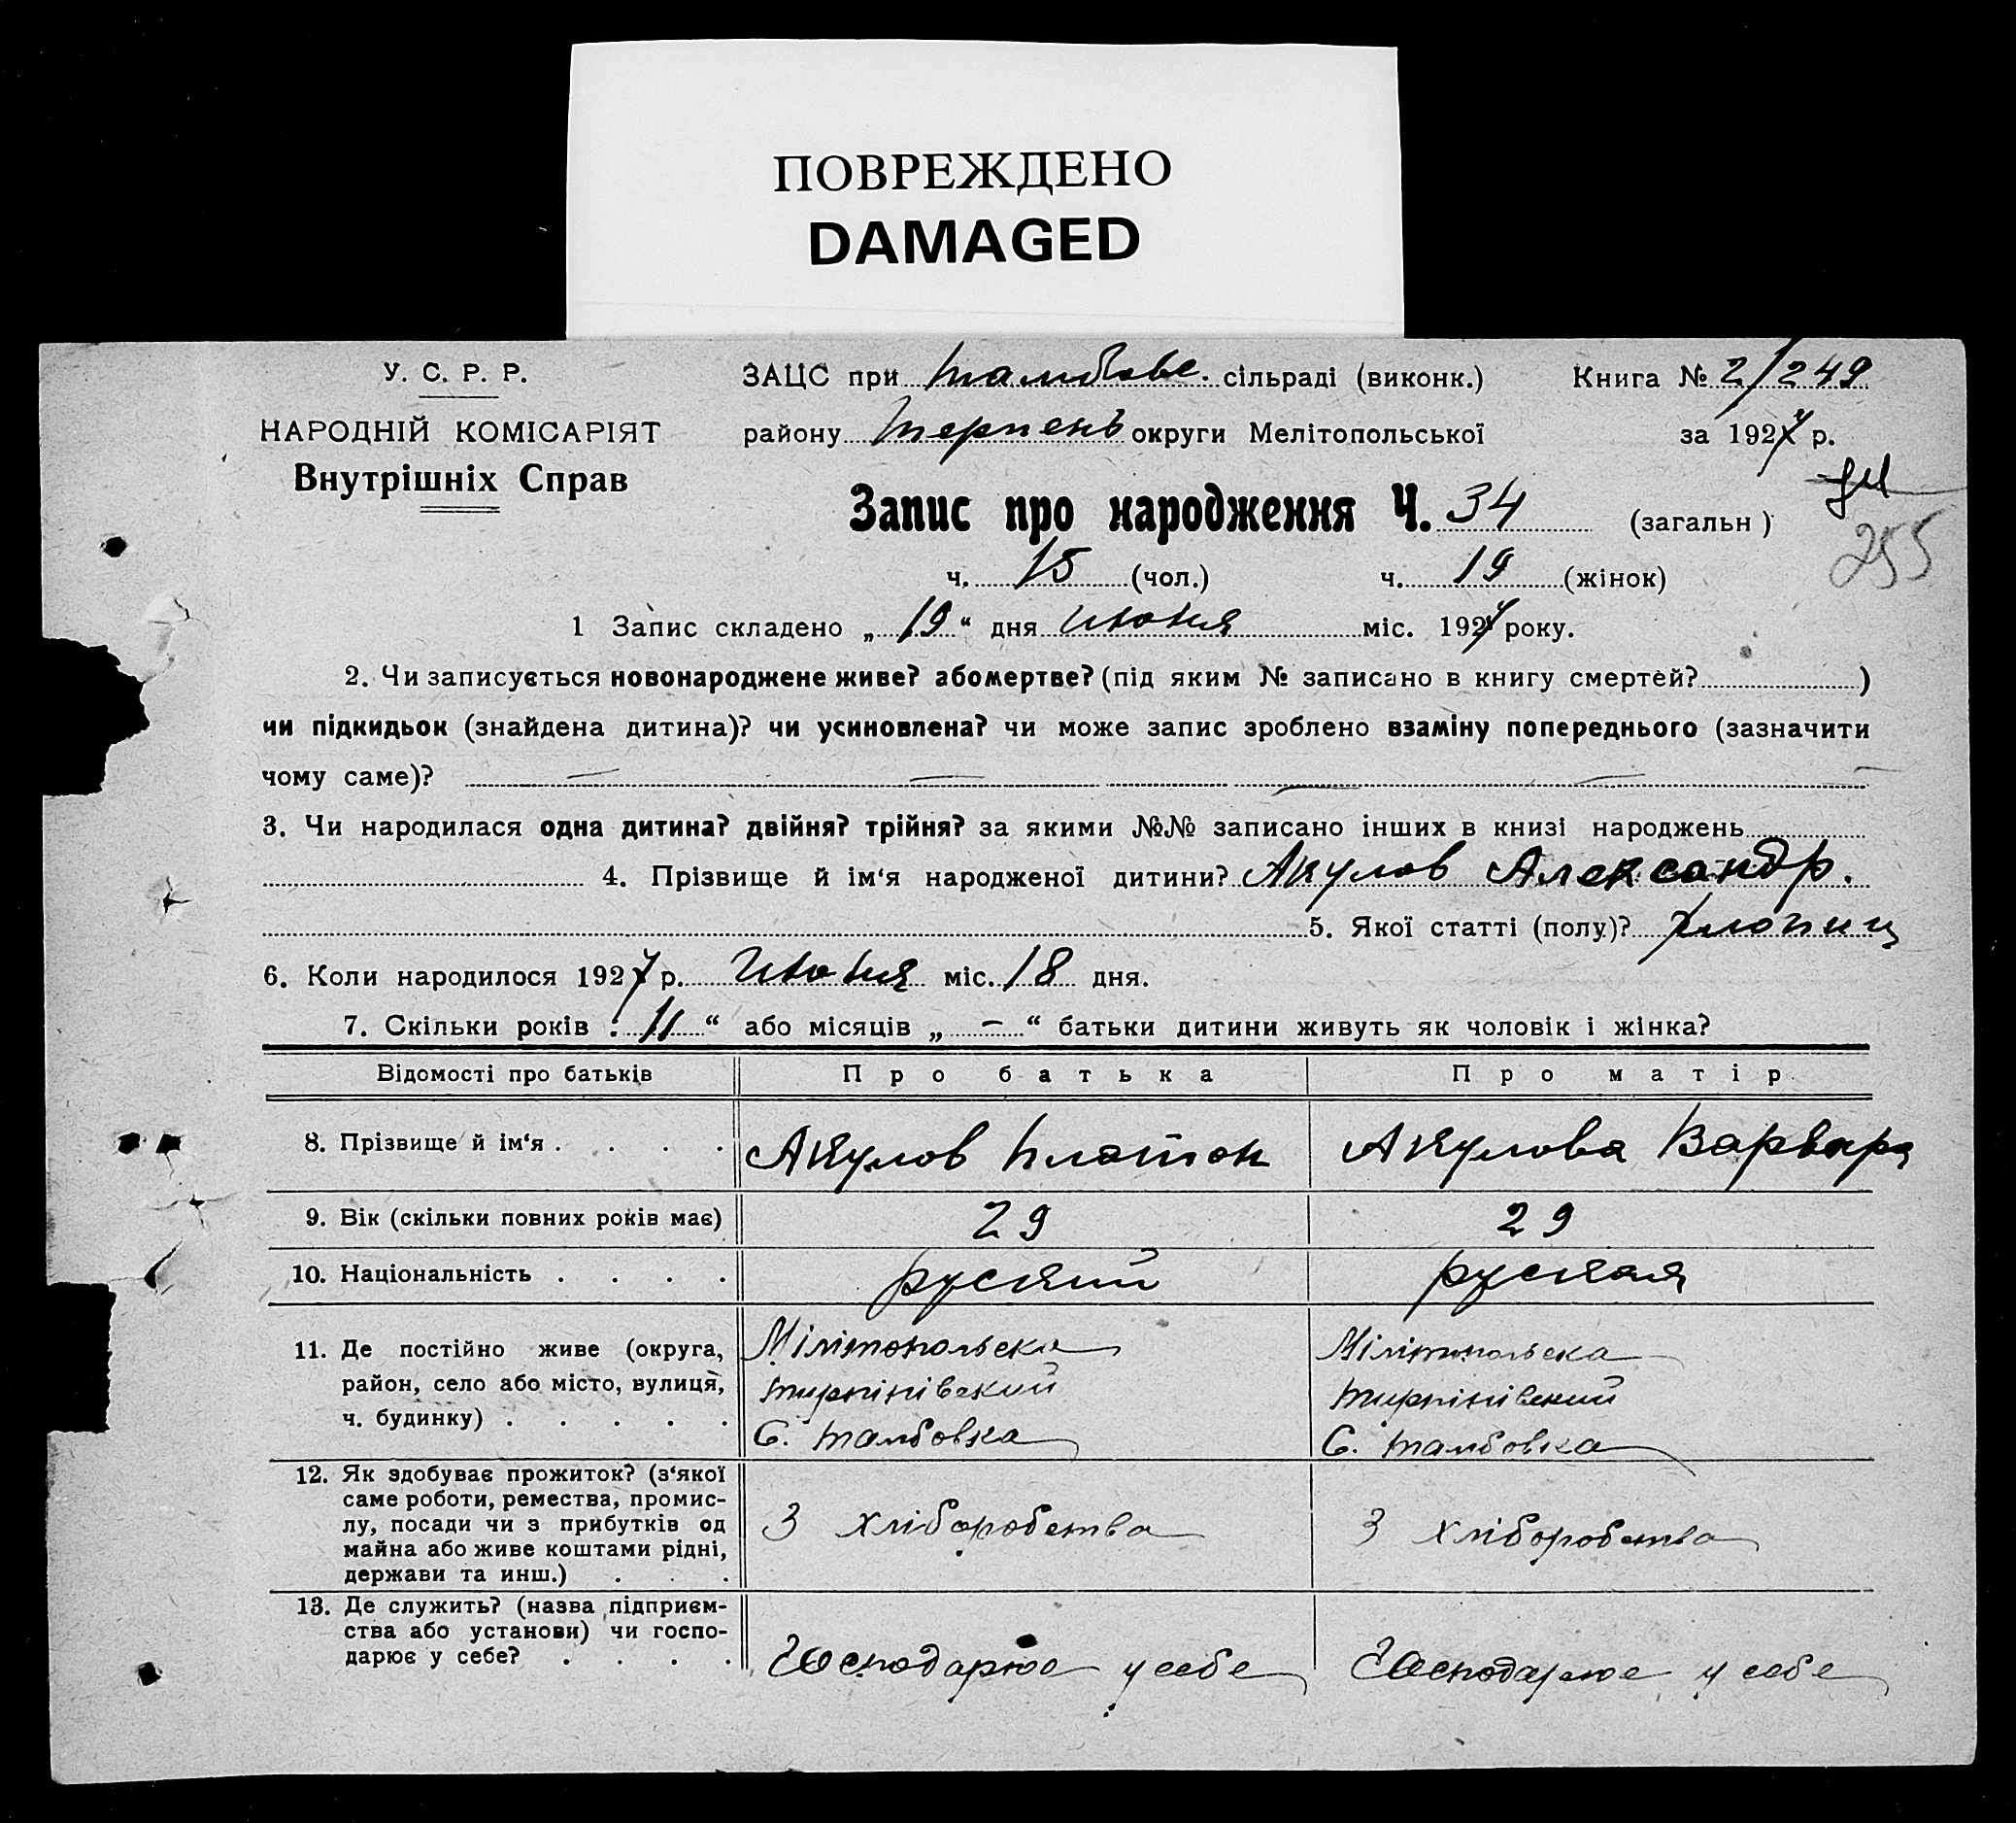 ПОВРЕЖДЕНО
DAMAGED
У. С. Р. Р.
НАРОДНІЙ КОМІСАРІЯТ
Внутрішніх Справ
ЗАЦС при Тамбовс. сільраді (виконк.) Книга № 2/249
району Терпень округи Мелітопольської за 1927 р.
Запис про народження Ч. 34 (загальн)
255
ч. 15 (чол.) ч. 19 (жінок)
1 Запис складено „19“ дня июня міс. 1927 року.
2. Чи записується новонароджене живе? або мертве? (під яким № записано в книгу смертей? )
чи підкидьок (знайдена дитина)? чи усиновлена? чи може запис зроблено взаміну попереднього (зазначити
чому саме)? — — — —
3. Чи народилася одна дитина? двійня? трійня? за якими №№ записано інших в книзі народжень
4. Прізвище й ім‘я народженої дитини? Акулов Александр.
5. Якої статті (полу)? хлопиц
6. Коли народилося 1927 р. Июня міс. 18 дня.
7. Скільки років „11“ або місяців „—“ батьки дитини живуть як чоловік і жінка?
Відомості про батьків Про батька Про матір
8. Прізвище й ім‘я . . . . Акулов Платон Акулова Варвара
9. Вік (скільки повних років має) 29 29
10. Національність . . . . руский руская
11. Де постійно живе (округа,
район, село або місто, вулиця,
ч. будинку) . . . . .
Мілітопольска
тирпінівский
С. тамбовка
Мілітопольска
тирпінівский
С. тамбовка
12. Як здобуває прожиток? (з‘якої
саме роботи, ремества, промис-
лу, посади чи з прибутків од
майна або живе коштами рідні,
держави та инш.) . . .
З хліборобства З хліборобства
13. Де служить? (назва підприєм-
ства або установи) чи госпо-
дарює у себе? . . . .
Господарює у себе Господарює у себе